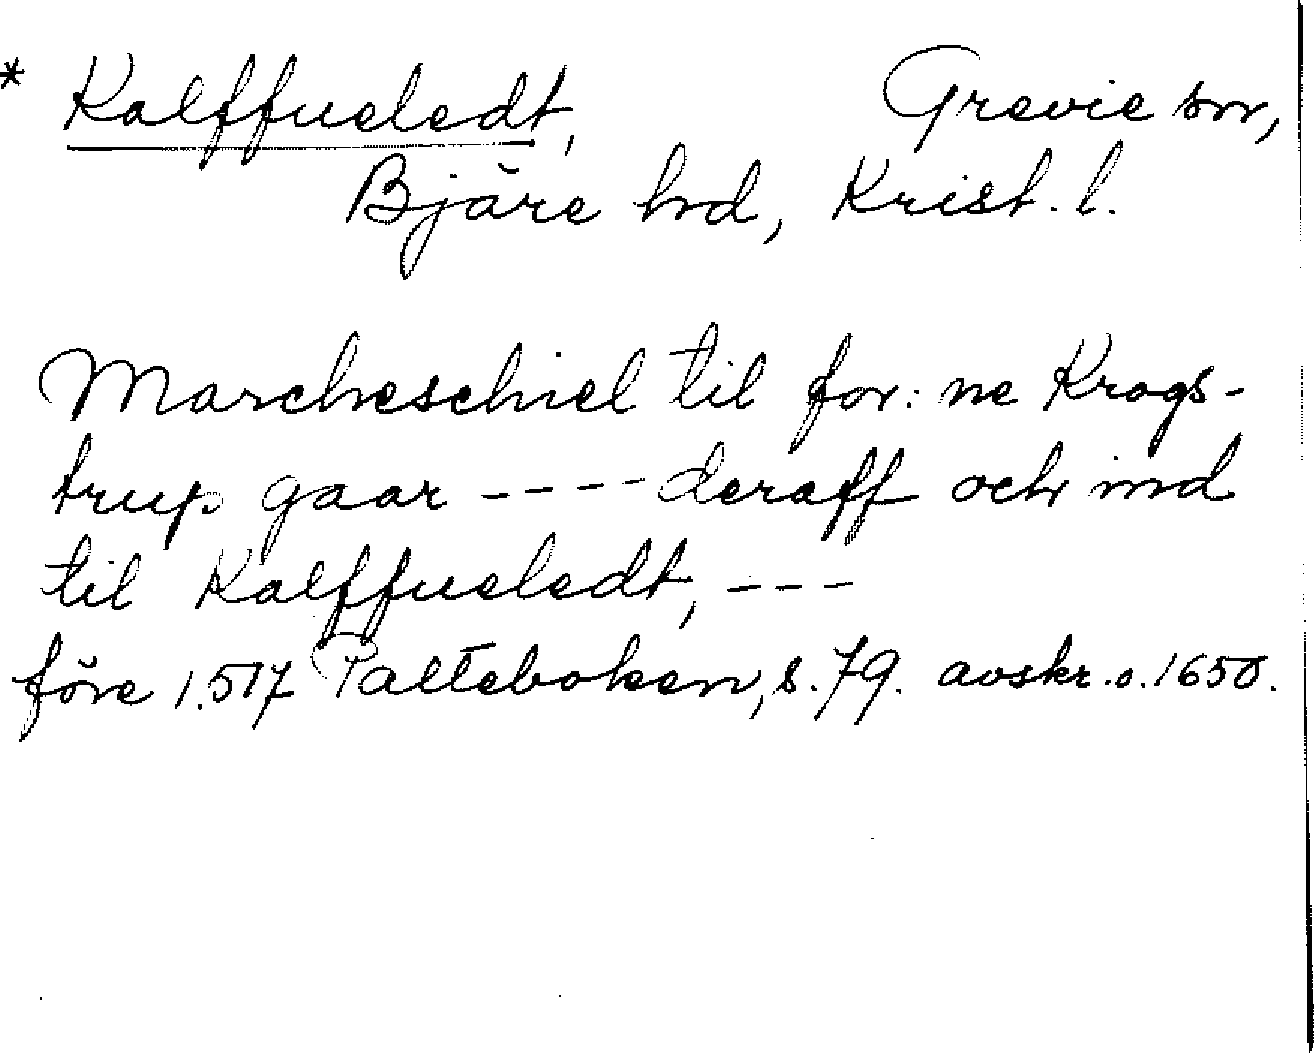 * Kalffueledt, Grevie sn,
Bjäre hd, Krist. l.
Marcheschiel til for: ne Krogs-
trup gaar ---- deraff och ind
til Kalffueledt, ---
före 1517 Palteboken, s. 79. avskr. o. 1650.